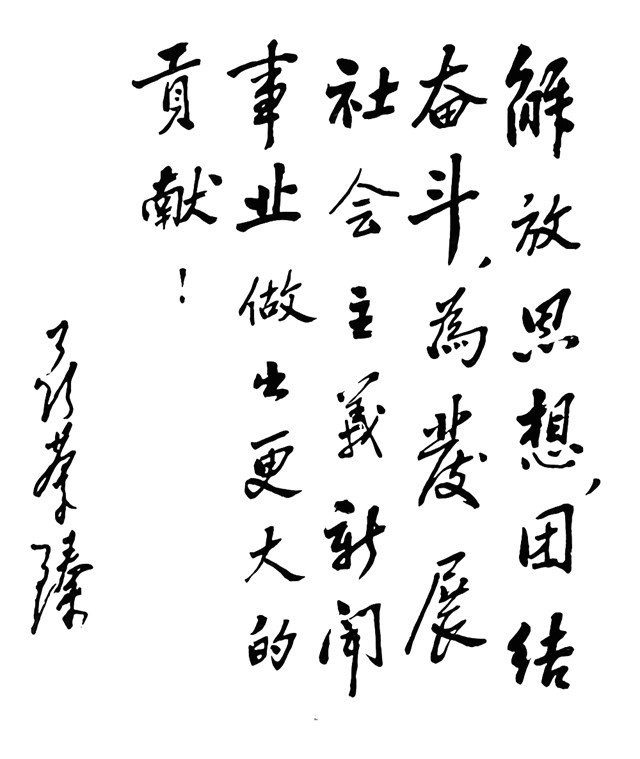 解放思想,团结
奋斗,為發展
社会主義新闻
事业做出更大的
貢献!
聂荣臻